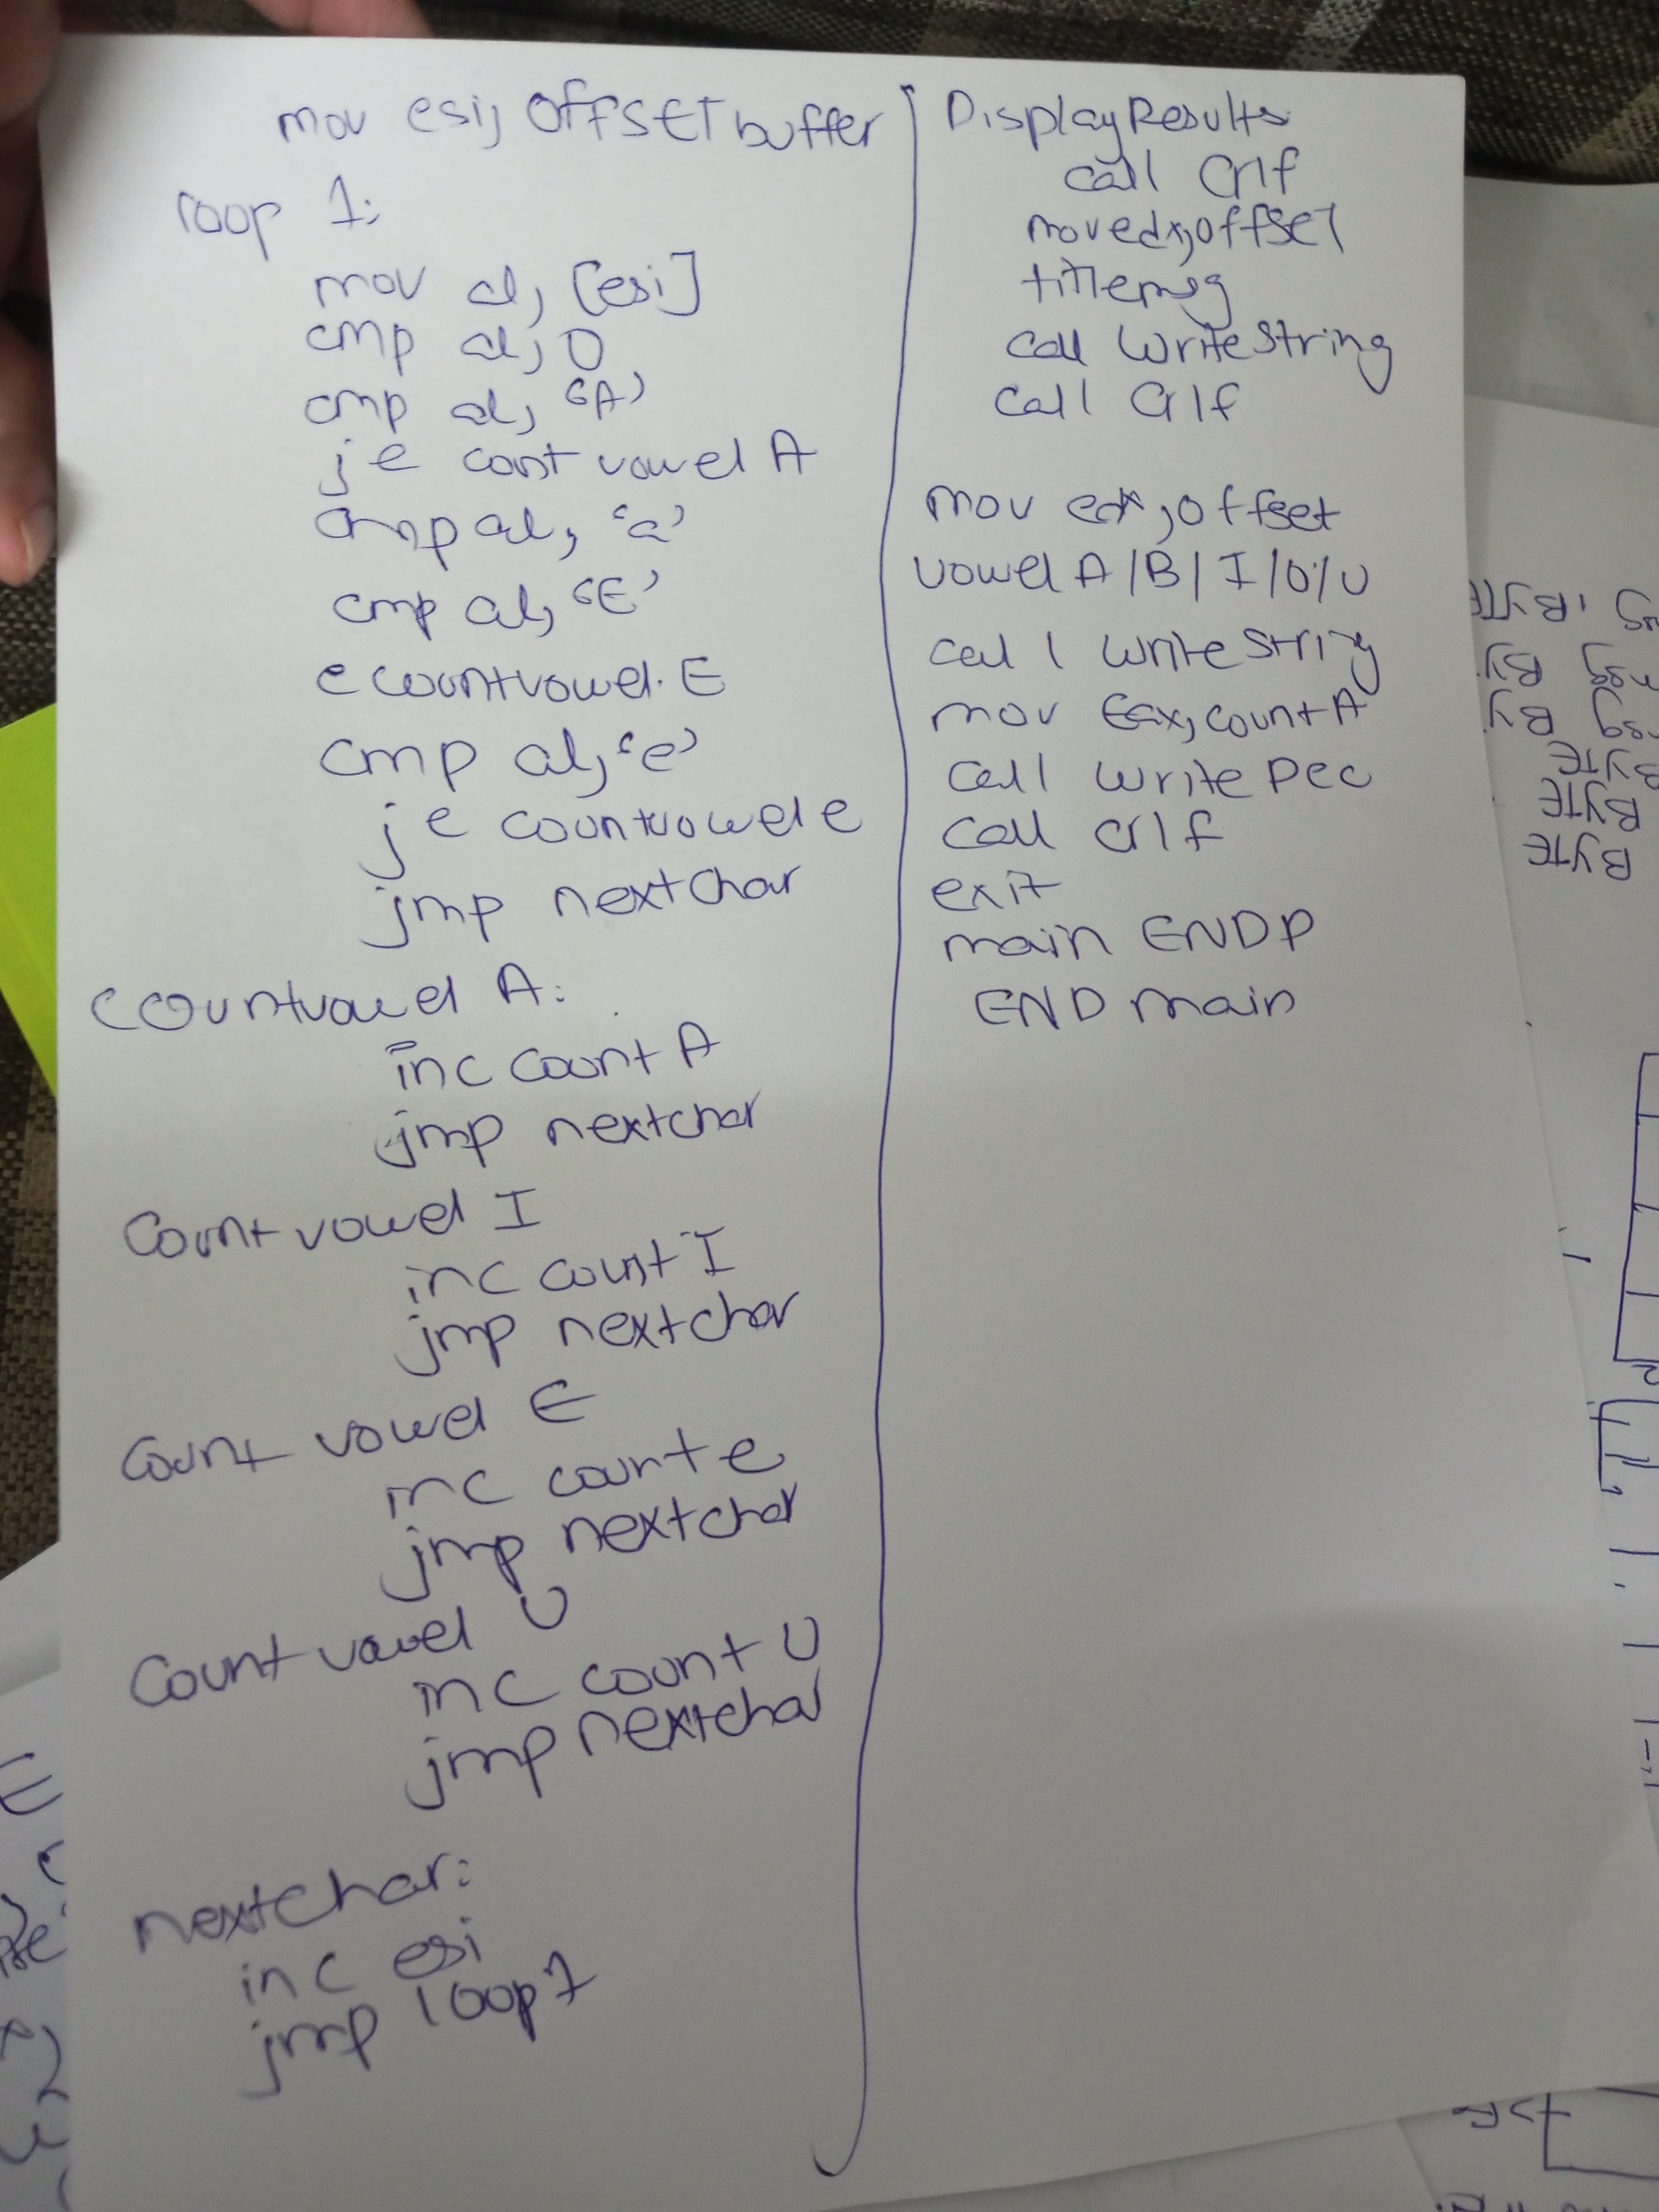 mov esi, OFFSET buffer
loop 1:
mov al, [esi]
cmp al, 0
cmp al, 'A'
je count vowel A
cmp al, 'a'
cmp al, 'E'
e countvowel E
cmp al, 'e'
je countvowel e
jmp nextchar
countvowel A:
inc count A
jmp nextchar
Count vowel I
inc count I
jmp nextchar
Count vowel E
inc count e
jmp nextchar
Count vowel U
inc count U
jmp nextchar
nextchar:
inc esi
jmp loop1
DisplayResults
call Crlf
mov edx, offset
titlemsg
call WriteString
call Crlf
mov edx, offset
vowel A/B/I/O/U
call WriteString
mov Eax, count A
call write Dec
call crlf
exit
main ENDP
END main
BYTE
BYTE
BYTE